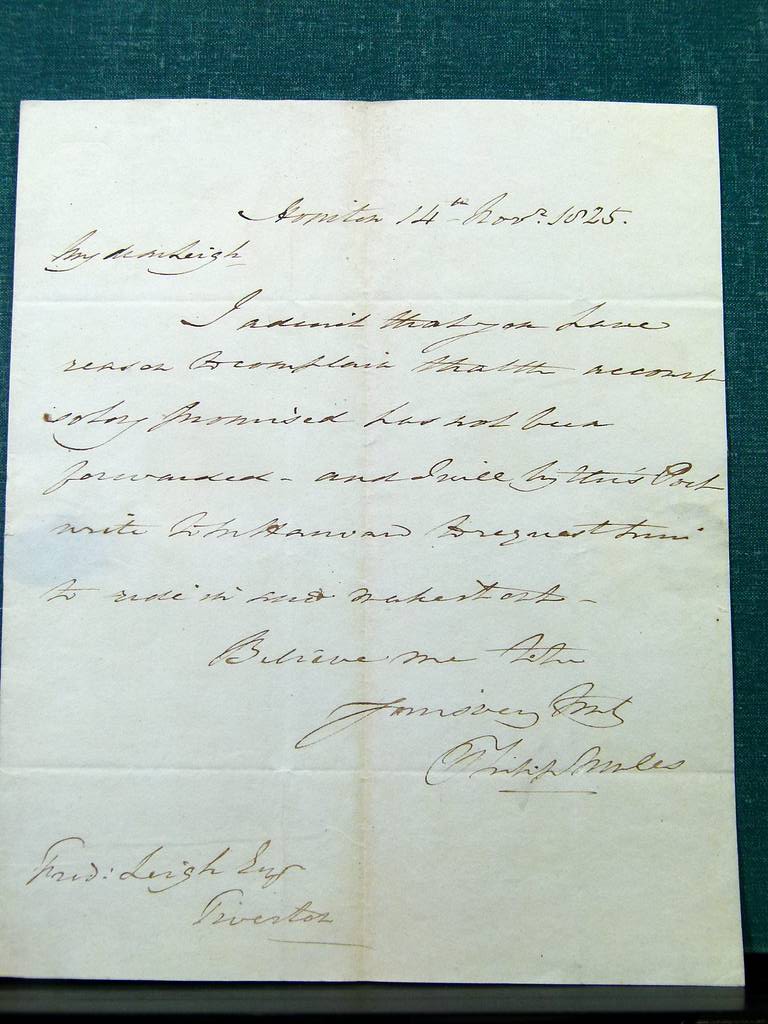 Honiton 14th Novr. 1825.
My dear Leigh
I admit that you have
reason to complain that the account
so long promised has not been
forwarded - and I will by this Post
write to Mr to request him
to ride in and make out -
Believe me to be
Yours very truly
Philip Mules
Fred: Leigh Esq
Tiverton